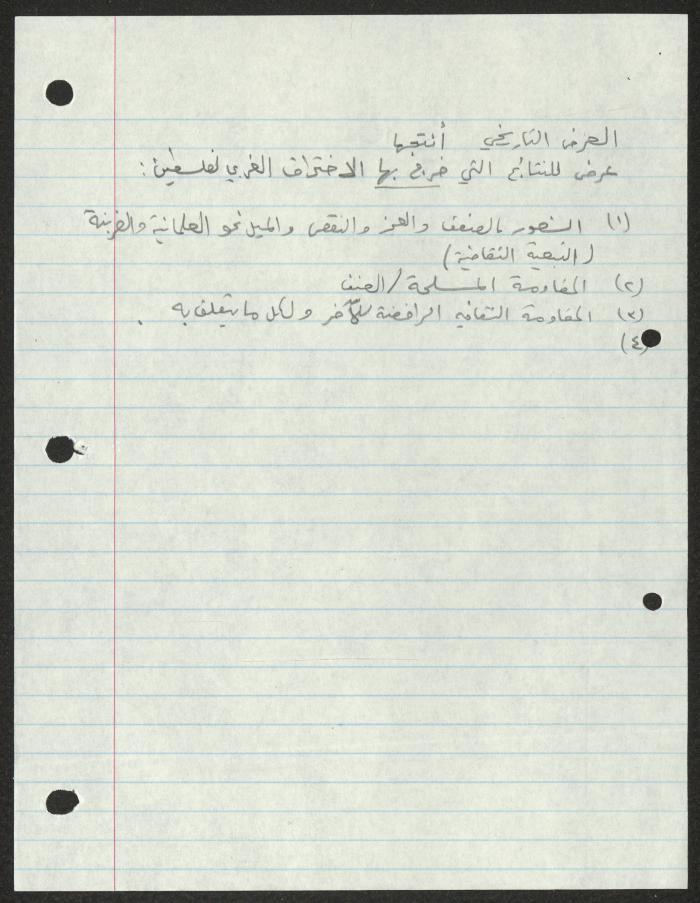 العرض التاريخي أنتجها
عرض للنتائج التي خرج بها الاختراق الغربي لفلسطين :
(١) الشعور بالضعف والعجز والنقص والميل نحو العلمانية والغربنة
(التبعية الثقافية)
(٢) المقاومة المسلحة/العنف
(٣) المقاومة الثقافيه الرافضة للآخر ولكل ما يتعلق به .
(٤)